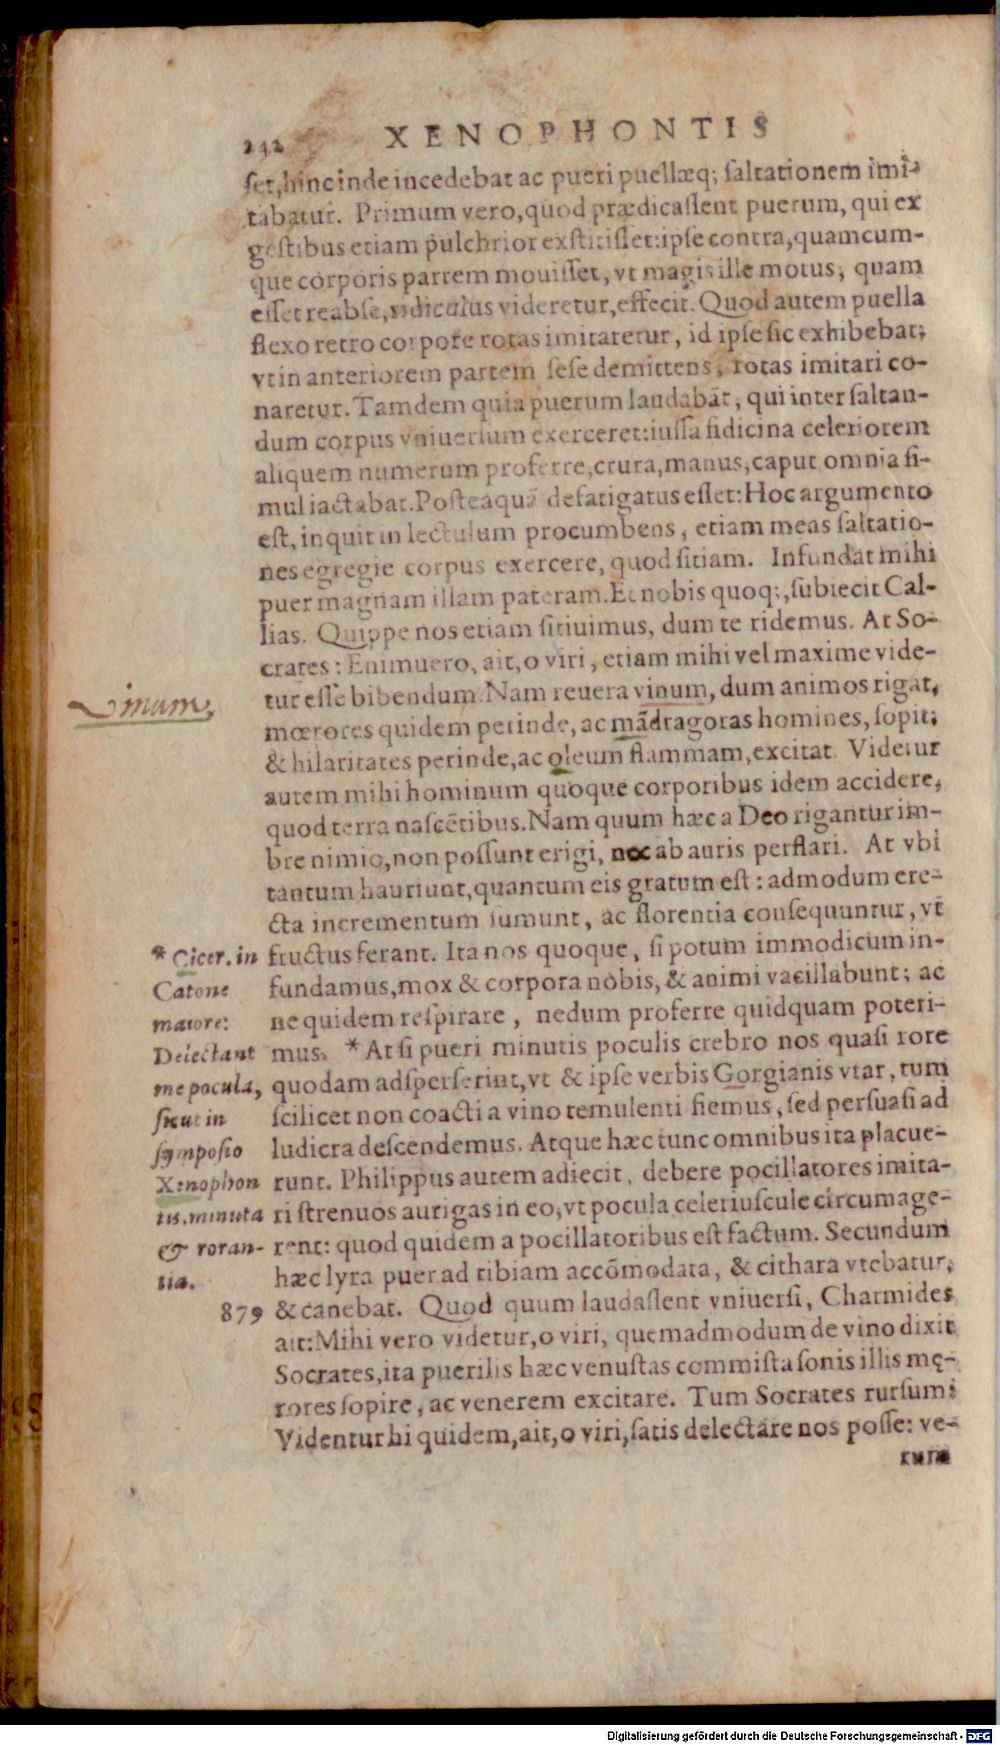 242 XENOPHONTIS
ſet, hinc inde incedebat ac pueri puellæq; ſaltationem imi-
tabatur. Primum vero, quod prædicaſſent puerum, qui ex
geſtibus etiam pulchrior exſtitiſſet: ipſe contra, quamcum-
que corporis partem mouiſſet, vt magis ille motus, quam
eſſet reabſe, ridiculus videretur, effecit. Quod autem puella
flexo retro corpore rotas imitaretur, id ipſe ſic exhibebat;
vt in anteriorem partem ſeſe demittens, rotas imitari co-
naretur. Tamdem quia puerum laudabāt, qui inter ſaltan-
dum corpus vniuerſum exerceret: iuſſa fidicina celeriorem
aliquem numerum proferre, crura, manus, caput omnia ſi-
mul iactabat. Poſteaquā defatigatus eſſet: Hoc argumento
eſt, inquit in lectulum procumbens, etiam meas ſaltatio-
nes egregie corpus exercere, quod ſitiam. Infundat mihi
puer magnam illam pateram. Et nobis quoq;, ſubiecit Cal-
lias. Quippe nos etiam ſitiuimus, dum te ridemus. At So-
crates: Enimuero, ait, o viri, etiam mihi vel maxime vide-
tur eſſe bibendum. Nam reuera vinum, dum animos rigat,
Vinum,
mœrores quidem perinde, ac mādragoras homines, ſopit;
& hilaritates perinde, ac oleum flammam, excitat. Videtur
autem mihi hominum quoque corporibus idem accidere,
quod terra naſcētibus. Nam quum hæc a Deo rigantur im-
bre nimio, non poſſunt erigi, nec ab auris perflari. At vbi
tantum hauriunt, quantum eis gratum eſt: admodum ere-
cta incrementum ſumunt, ac florentia conſequuntur, vt
fructus ferant. Ita nos quoque, ſi potum immodicum in-
fundamus, mox & corpora nobis, & animi vacillabunt; ac
ne quidem reſpirare, nedum proferre quidquam poteri-
mus. * At ſi pueri minutis poculis crebro nos quaſi rore
quodam adſperſerint, vt & ipſe verbis Gorgianis vtar, tum
ſcilicet non coacti a vino temulenti fiemus, ſed perſuaſi ad
ludicra deſcendemus. Atque hæc tunc omnibus ita placue-
runt. Philippus autem adiecit, debere pocillatores imita-
ri ſtrenuos aurigas in eo, vt pocula celeriuſcule circumage-
rent: quod quidem a pocillatoribus eſt factum. Secundum
hæc lyra puer ad tibiam accōmodata, & cithara vtebatur,
* Cicer. in
Catone
maiore:
Delectant
me pocula,
ſicut in
ſympoſio
Xenophon
tis, minuta
& roran-
tia.
879 & canebat. Quod quum laudaſſent vniuerſi, Charmides
ait: Mihi vero videtur, o viri, quemadmodum de vino dixit
Socrates, ita puerilis hæc venuſtas commiſta ſonis illis mę-
rores ſopire, ac venerem excitare. Tum Socrates rurſum:
Videntur hi quidem, ait, o viri, ſatis delectare nos poſſe: ve-
rum
Digitalisierung gefördert durch die Deutsche Forschungsgemeinschaft - DFG